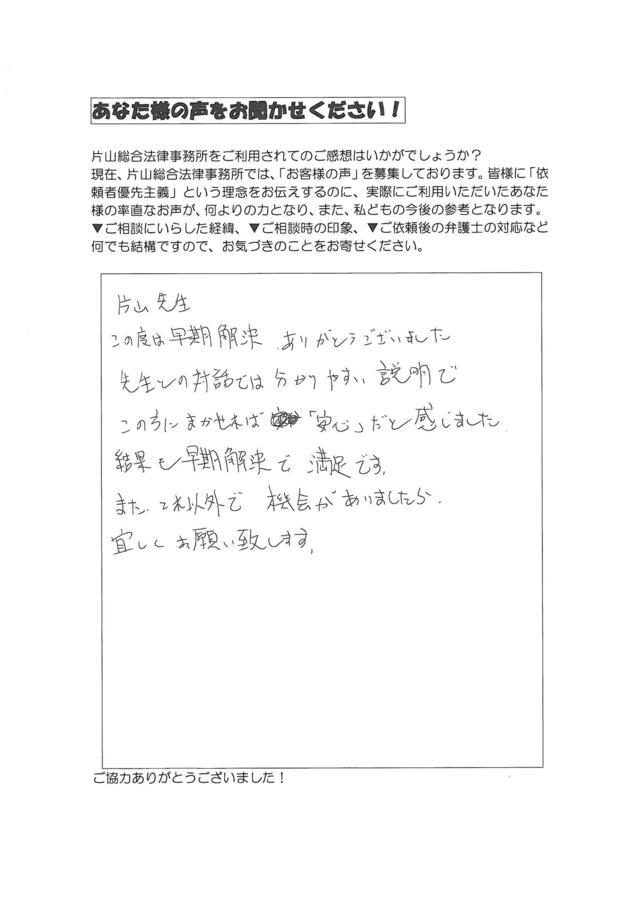 あなた様の声をお聞かせください！
片山総合法律事務所をご利用されてのご感想はいかがでしょうか？
現在、片山総合法律事務所では、「お客様の声」を募集しております。皆様に「依
頼者優先主義」という理念をお伝えするのに、実際にご利用いただいたあなた
様の率直なお声が、何よりの力となり、また、私どもの今後の参考となります。
▼ご相談にいらした経緯、▼ご相談時の印象、▼ご依頼後の弁護士の対応など
何でも結構ですので、お気づきのことをお寄せください。
片山先生
この度は早期解決 ありがとうございました
先生との対話では分かりやすい説明で
この方にまかせれば「安心」だと感じました
結果も早期解決で満足です。
また、これ以外で機会がありましたら、
宜しくお願い致します。
ご協力ありがとうございました！